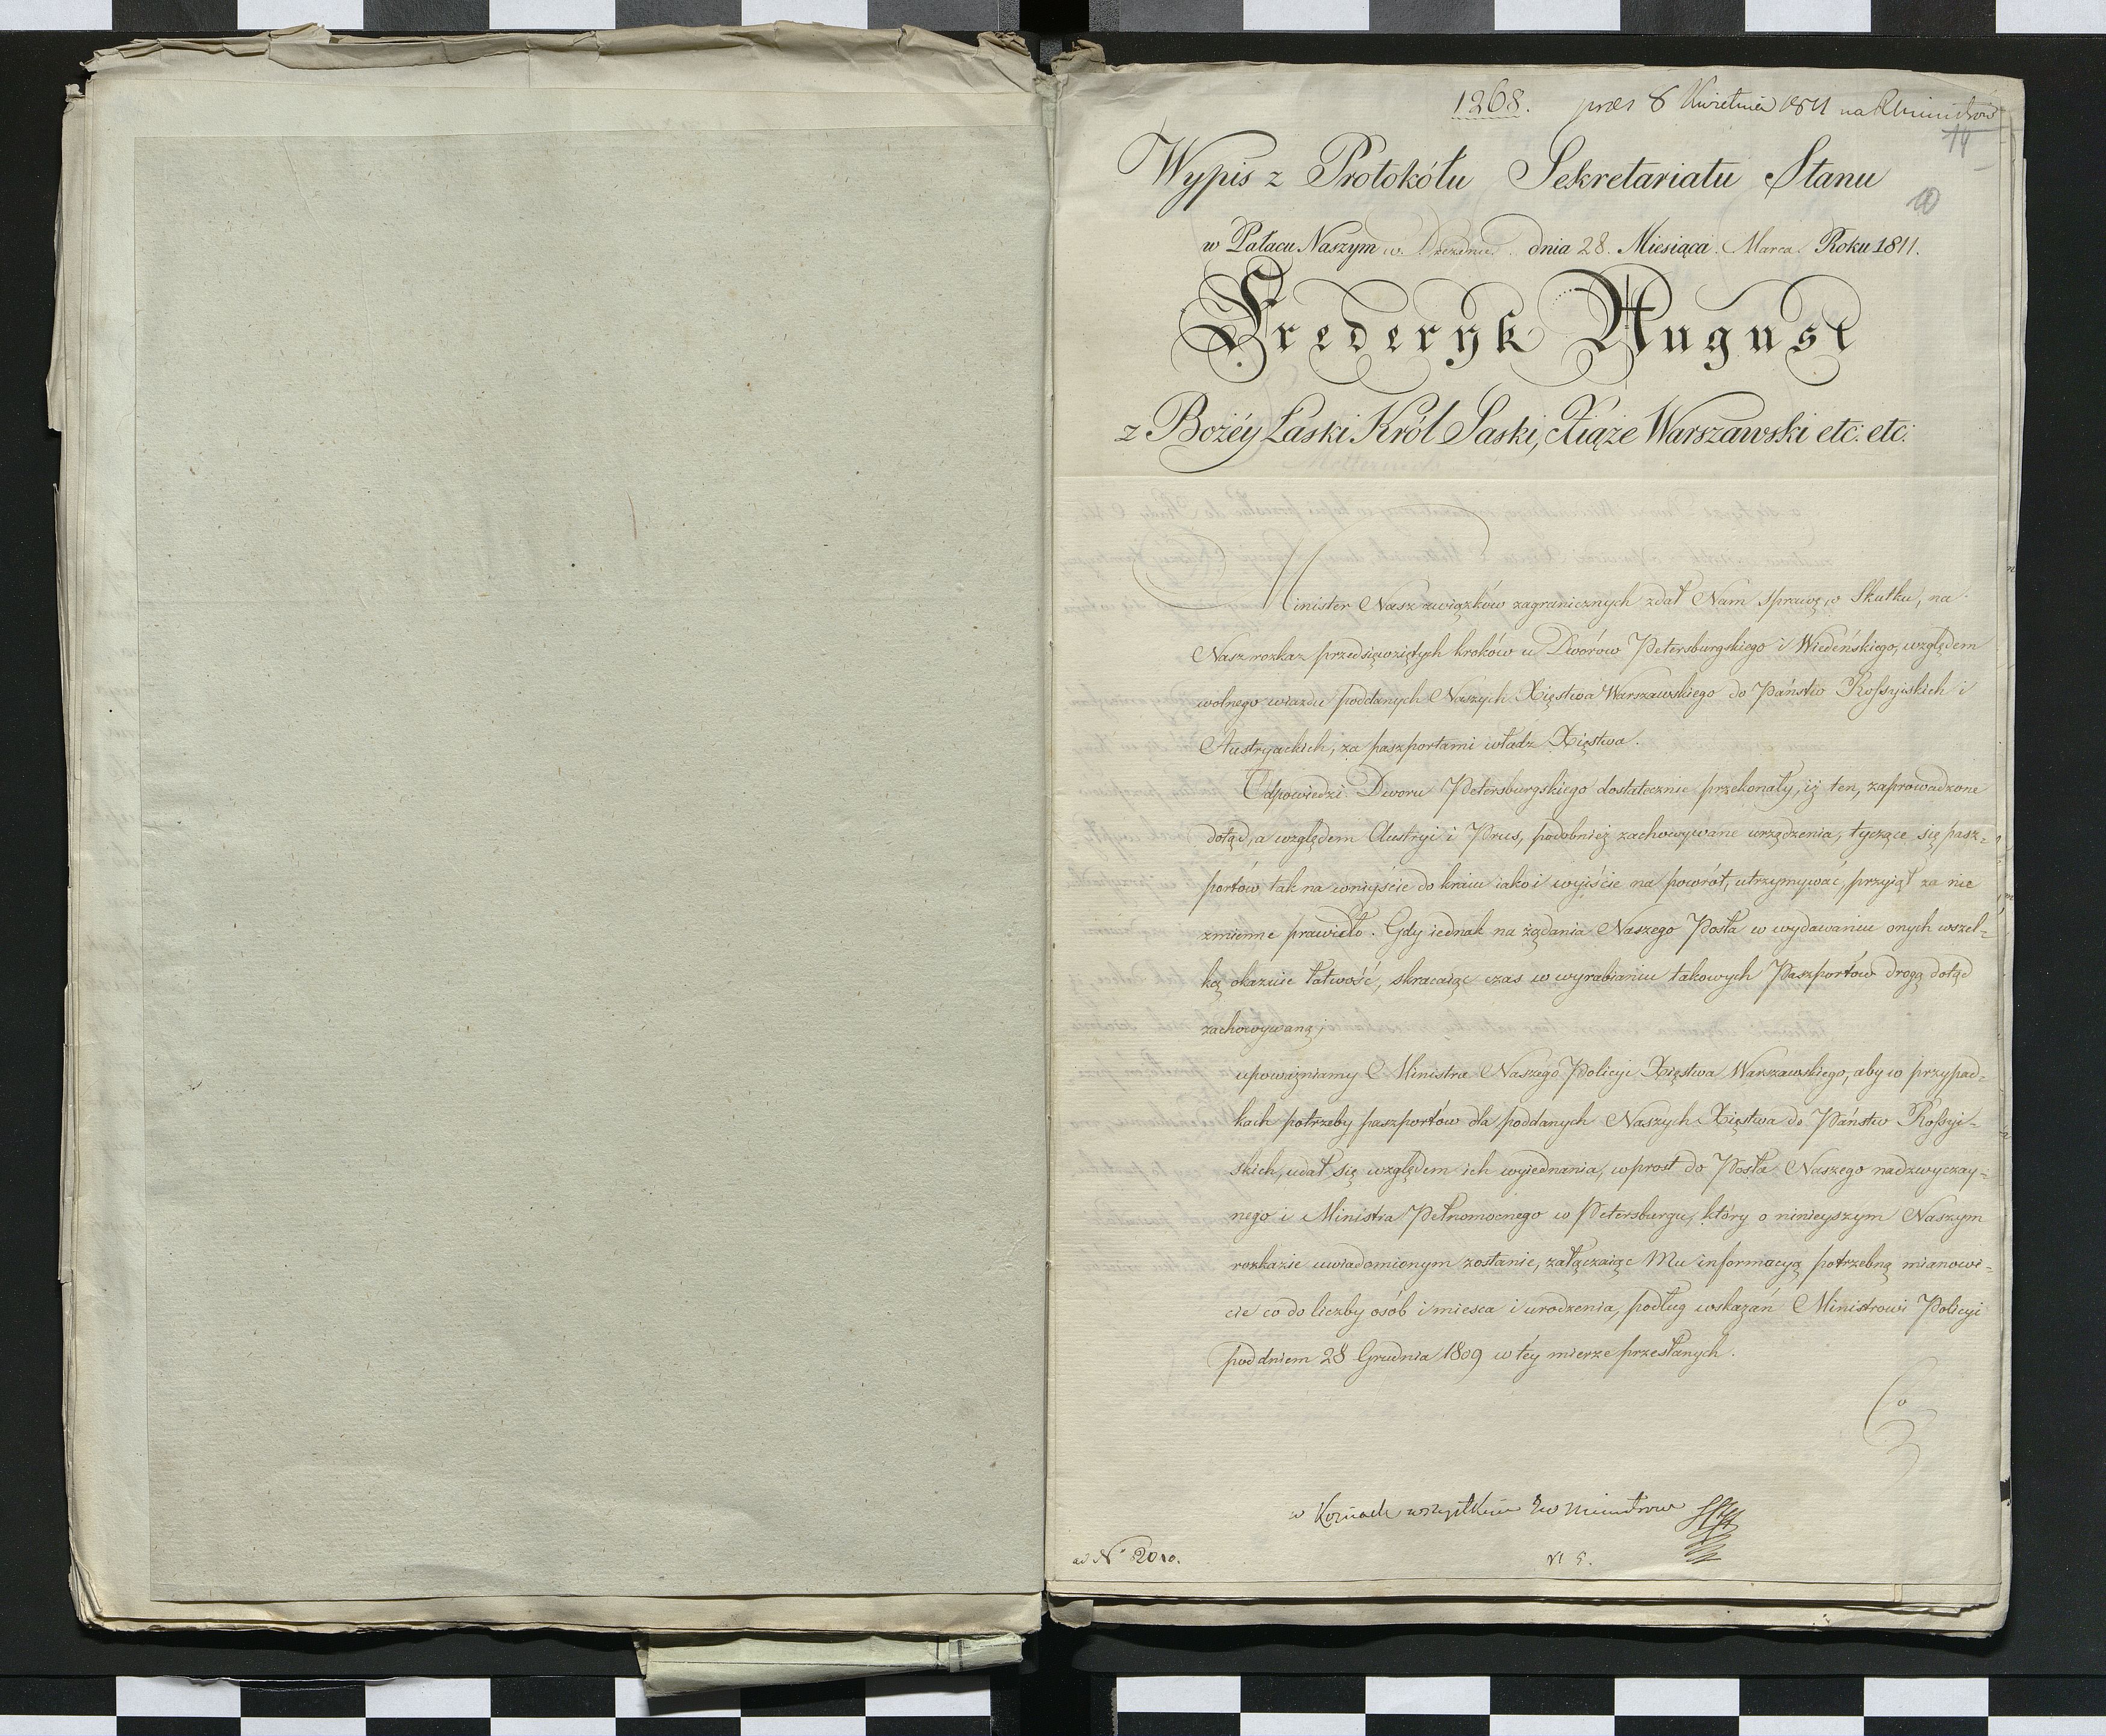 1268. prds 8 Kwietnia 1811 na R Ministrów
14
10
Wypis z Protokółu Sekretariatu Stanu
w Pałacu Naszym w Dreznie dnia 28. Miesiąca Marca Roku 1811.
Frederyk August
z Bożéy Łaski Król Saski, Xiąże Warszawski etc: etc:
Minister Nasz związków zagranicznych zdał Nam sprawę, o skutku, na
Nasz rozkaz przedsięwziętych kroków u Dworów Petersburgskiego i Wiedeńskiego, względem
wolnego wiazdu poddanych Naszych Xięstwa Warszawskiego do Państw Rossyiskich i
Austryackich, za paszportami władz Xięstwa.
Odpowiedzi Dworu Petersburgskiego dostatecznie przekonały, iż ten, zaprowadzone
dotąd, a względem Austryi i Prus, podobnież zachowywane urządzenia, tyczące się pasz-
portów, tak na wniyście do kraiu iako i wyiście na powrót, utrzymywać, przyiął za nie
zmienne prawidło. Gdy iednak na żądania Naszego Posła w wydawaniu onych wszel-
ką okazuie łatwość, skracaiąc czas w wyrabianiu takowych Paszportów drogą dotąd
zachowywaną;
upoważniamy Ministra Naszego Policyi Xięstwa Warszawskiego, aby w przypad-
kach potrzeby paszportów dla poddanych Naszych Xięstwa do Państw Rossyi-
skich, udał się względem ich wyiednania, wprost do Posła Naszego nadzwyczay-
nego i Ministra Pełnomocnego w Petersburgu, który o ninieyszym Naszym
rozkazie uwiadomionym zostanie, załączaiąc Mu informacyą potrzebną mianowi-
cie co do liczby osób i mieysca i urodzenia, podług wskazań Ministrowi Policyi
pod dniem 28 Grudnia 1809 w téy mierze przesłanych.
Co
w Kopiach wszystkim Ministrow
ad No 2010.